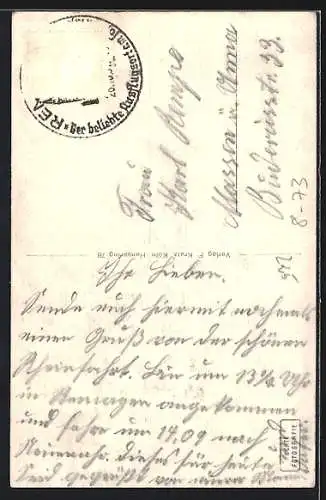 Der beliebte Ausflugsort am
Frau
Karl Rempe
Massen b. Unna
Buderusstr. 33.
8-73
Verlag F. Kratz Köln Hansaring 78
Ihr Lieben.
Sende euch hiermit nochmals
einen Gruß von der schönen
Rheinfahrt. Bin um 13¼ Uhr
in Remagen angekommen
und fahre um 14,09 nach
Neuenahr. Dieses für heute
Seid gegrüßt von eurer
FOTOGRAFIE